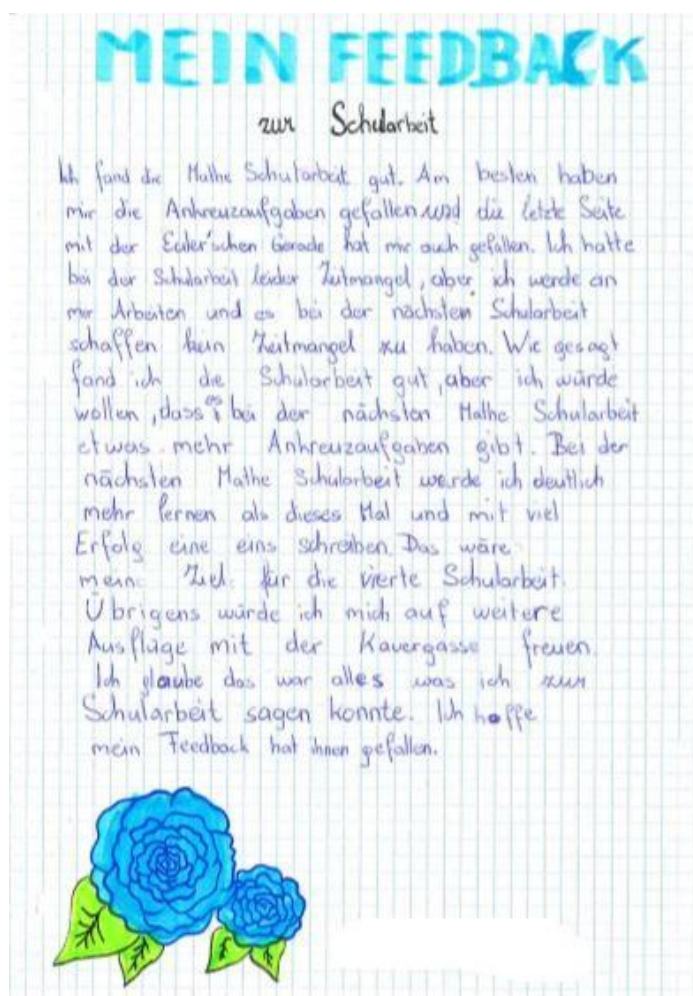 MEIN FEEDBACK
zur Schularbeit
Ich fand die Mathe Schularbeit gut. Am besten haben
mir die Ankreuzaufgaben gefallen und die letzte Seite
mit der Euler'schen Gerade hat mir auch gefallen. Ich hatte
bei der Schularbeit leider Zeitmangel, aber ich werde an
mir Arbeiten und es bei der nächsten Schularbeit
schaffen kein Zeitmangel zu haben. Wie gesagt
fand ich die Schularbeit gut, aber ich würde
wollen, dass es bei der nächsten Mathe Schularbeit
etwas mehr Ankreuzaufgaben gibt. Bei der
nächsten Mathe Schularbeit werde ich deutlich
mehr lernen als dieses Mal und mit viel
Erfolg eine eins schreiben. Das wäre
mein Ziel für die vierte Schularbeit.
Übrigens würde ich mich auf weitere
Ausflüge mit der Kavergasse freuen.
Ich glaube das war alles was ich zur
Schularbeit sagen konnte. Ich hoffe
mein Feedback hat ihnen gefallen.